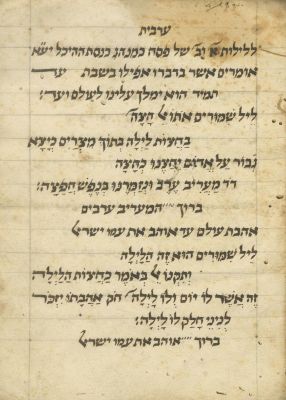 ערבית
ללילות א׳ וב׳ של פסח כמנהג כנסת ההיכל יע״א
אומרים אשר בדברו אפילו בשבת עד
תמיד הוא ימלך עלינו לעולם ועד:
ליל שמורים אותו חצה
בחצות לילה בתוך מצרים כיצא
גבור על אדום יחצנו כחצה
ברוך המעריב ערבים
אהבת עולם עד אוהב את עמו ישראל
ליל שמורים הוא זה הלילה
ויאמר כחצות הלילה
זה אשר לו יום ולו לילה חק אהבתו יזכר
לניני חלק לו לילה:
ברוך אוהב את עמו ישראל